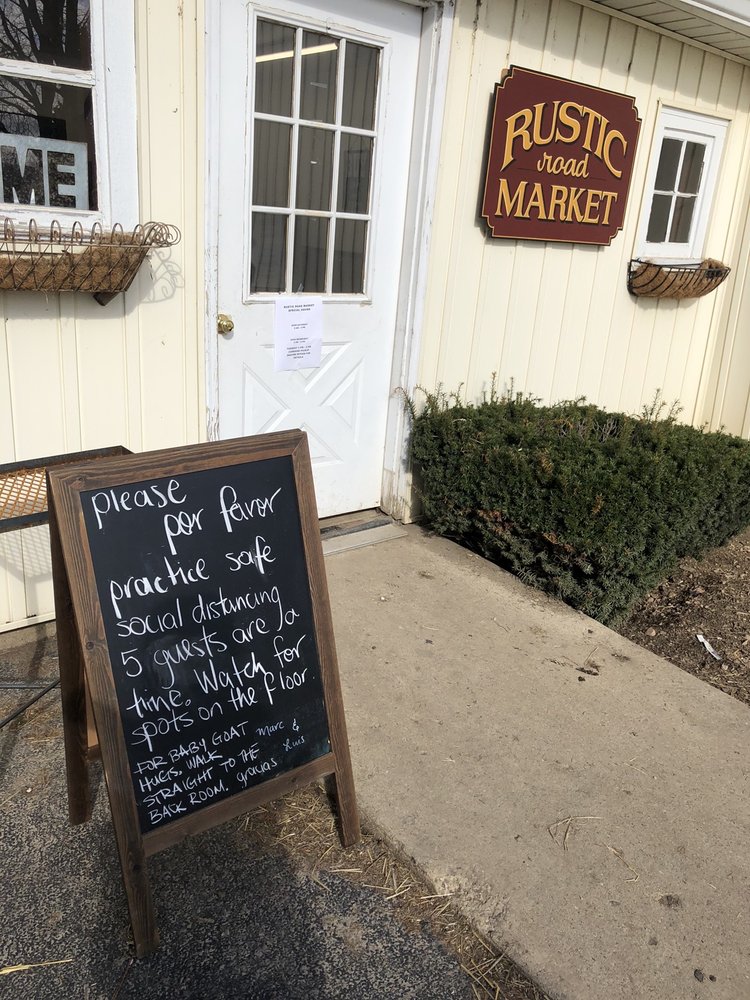 ME
RUSTIC
road
MARKET
RUSTIC ROAD MARKET
SPECIAL HOURS
please
por favor
practice safe
social distancing
5 guests are a
time. Watch for
spots on the floor.
FOR BABY GOAT marc &
HUGS, WALK Luis
STRAIGHT TO THE
BACK ROOM. gracias